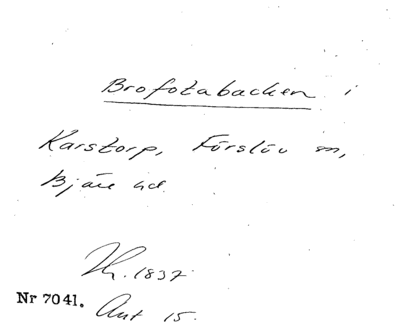 Brofotabacken i
Karstorp, Förslöv m,
Bjäre hd
Th. 1837
Nr 7041. Ant 15.